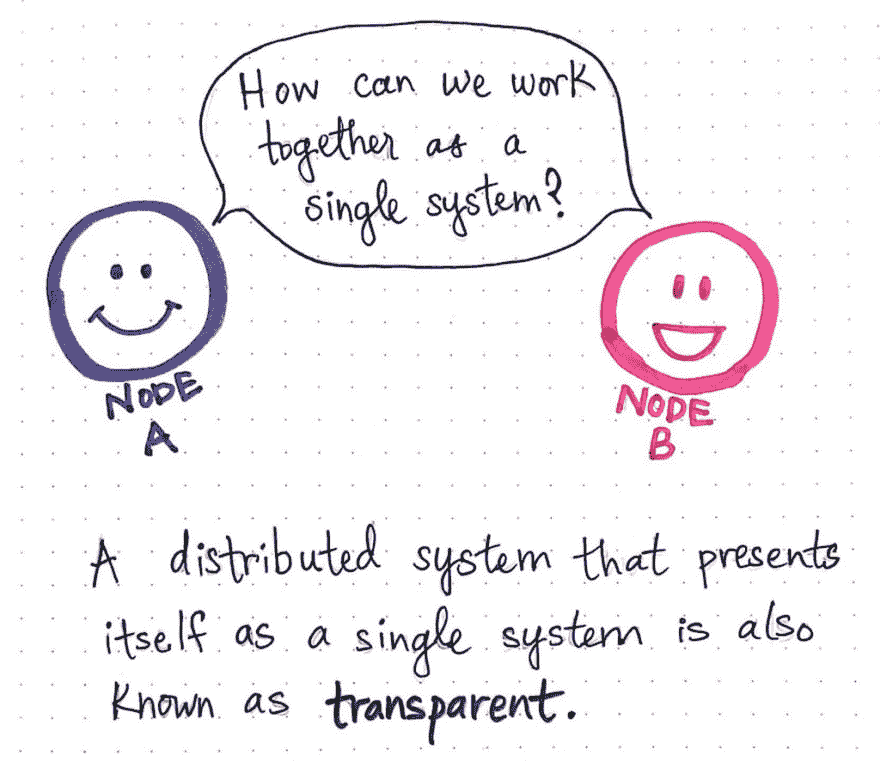 How can we work
together as a
single system?
NODE
A
NODE
B
A distributed system that presents
itself as a single system is also
known as transparent.